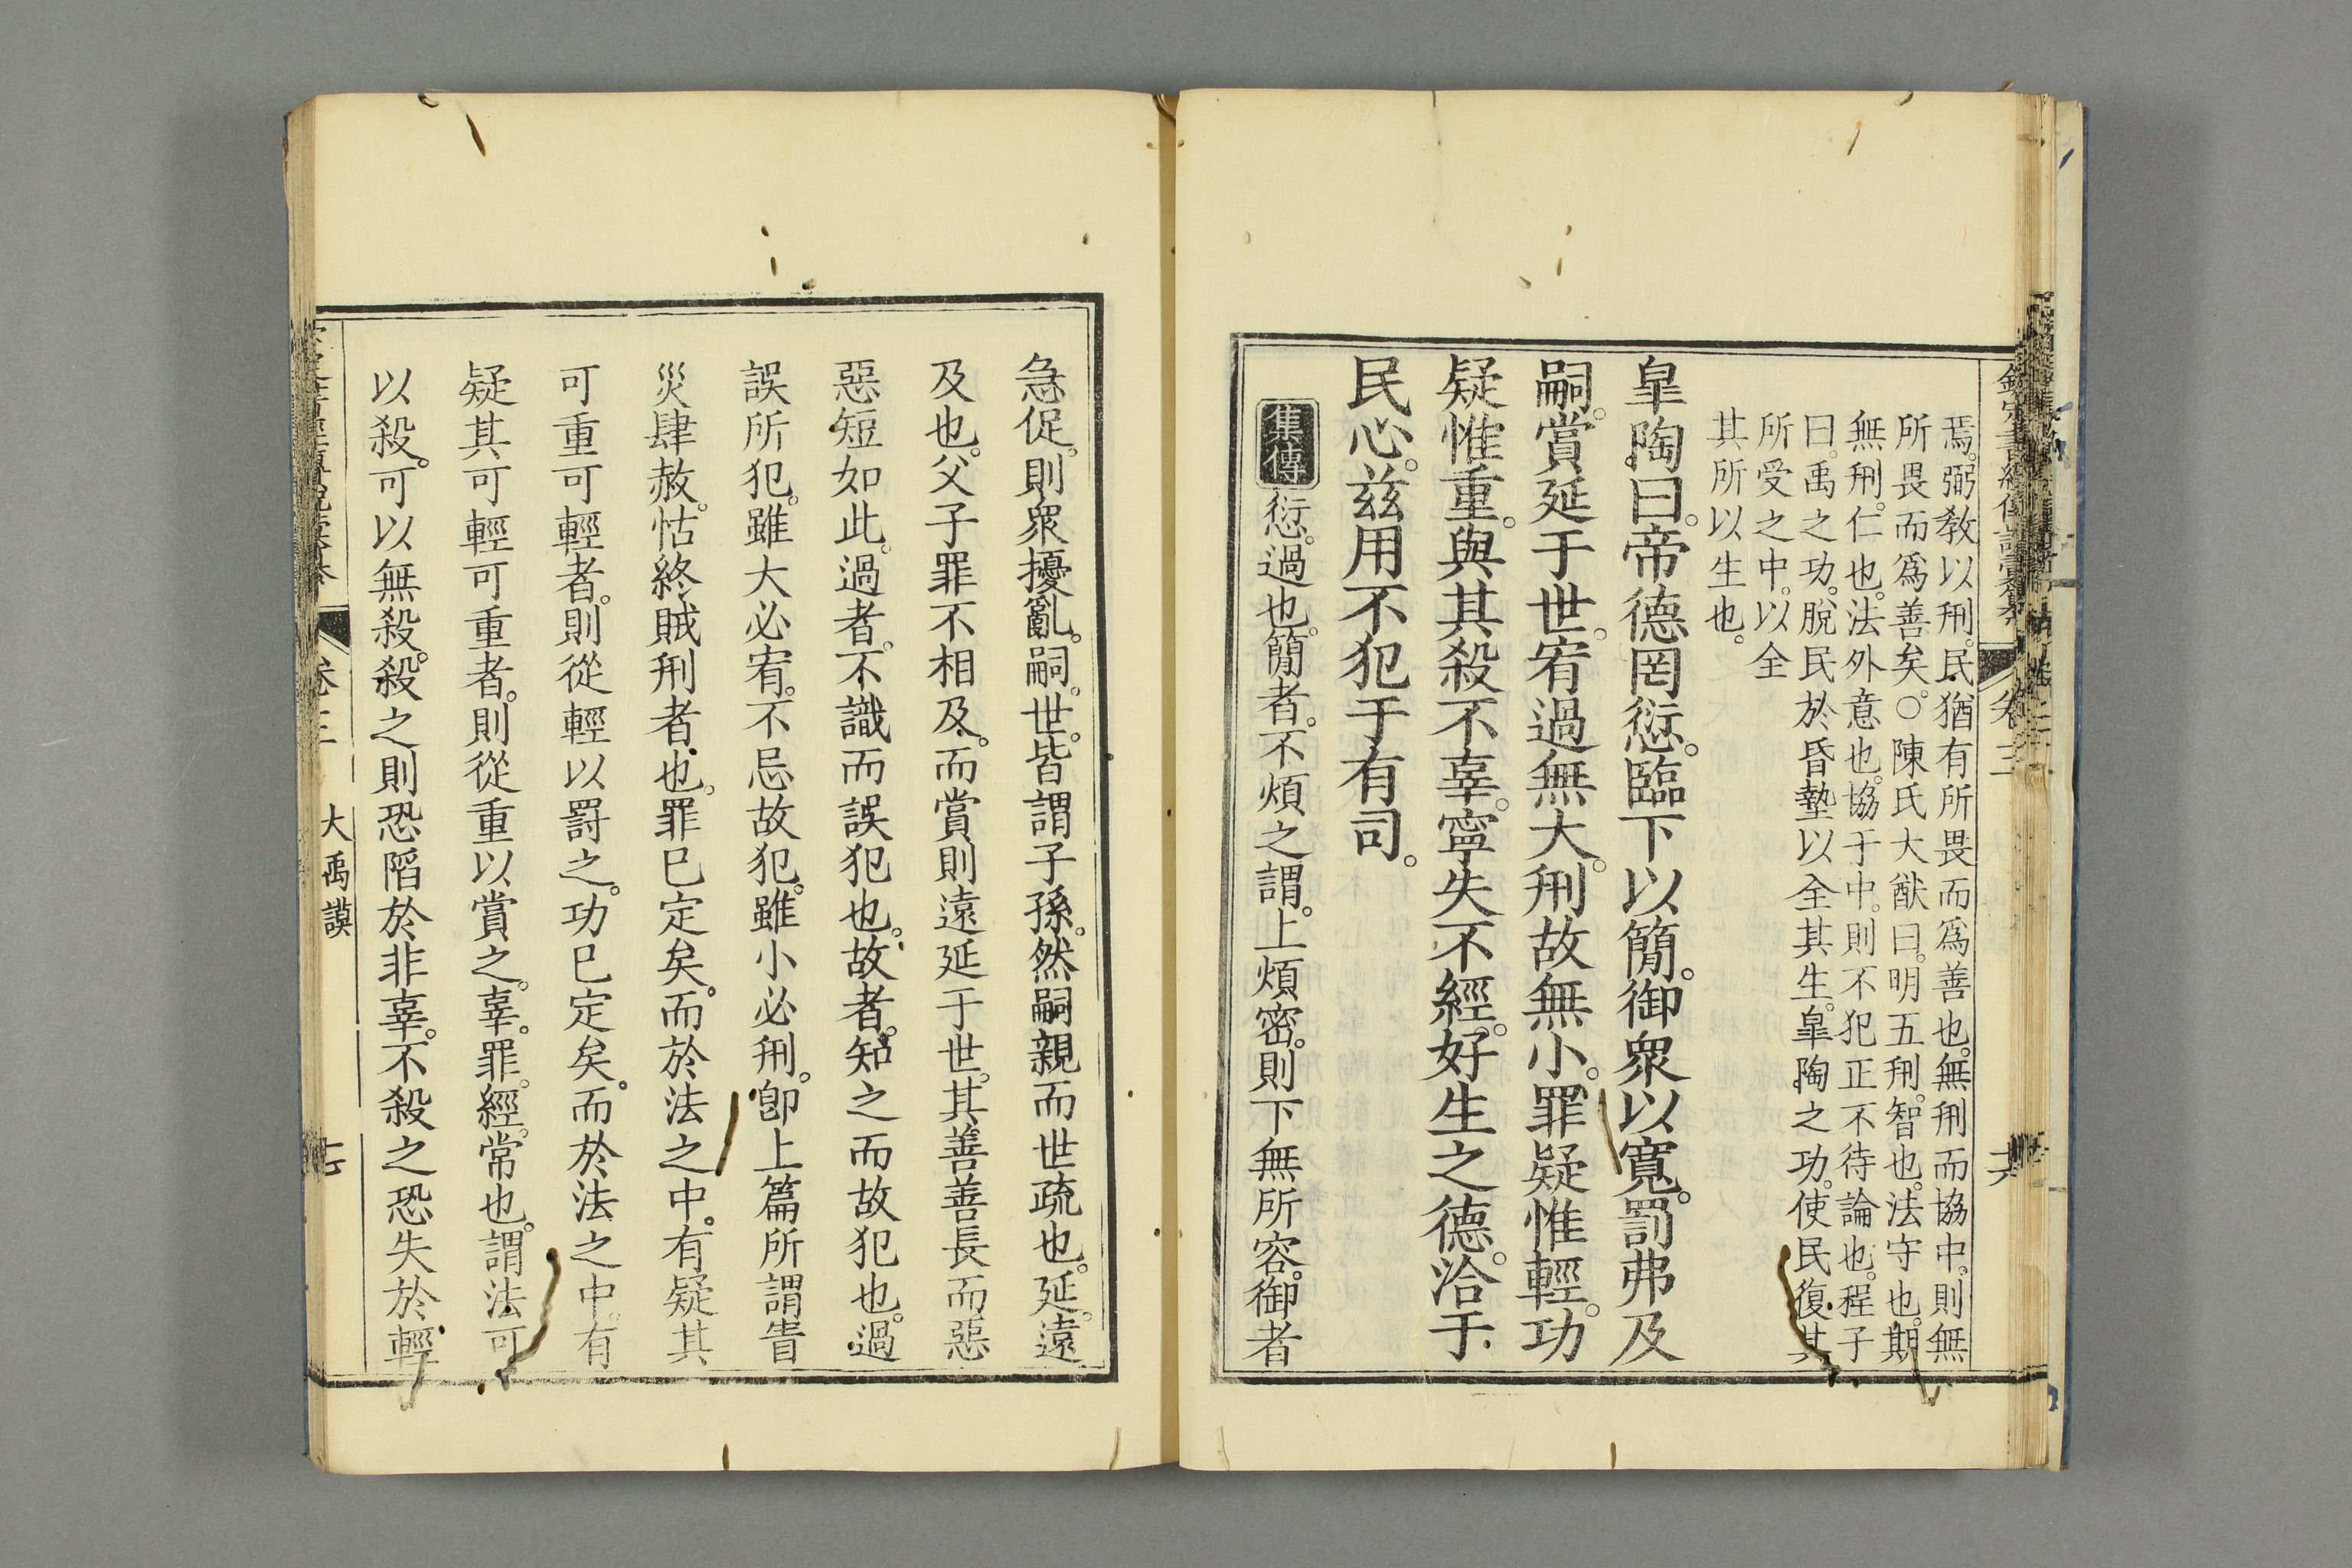 焉。弼敎以刑。民猶有所畏而爲善也。無刑而協中。則無
所畏而爲善矣。○陳氏大猷曰。明五刑。智也。法守也。期
無刑。仁也。法外意也。協于中。則不犯正不待論也。程子
曰。禹之功。脫民於昏墊以全其生。臯陶之功。使民復其
所受之中。以全
其所以生也。
臯陶曰。帝德罔愆。臨下以簡。御衆以寬。罰弗及
嗣。賞延于世。宥過無大。刑故無小。罪疑惟輕。功
疑惟重。與其殺不辜。寧失不經。好生之德。洽于
民心。玆用不犯于有司。
集傳 愆。過也。簡者。不煩之謂。上煩密。則下無所容。御者
急促。則衆擾亂。嗣。世。皆謂子孫。然嗣親而世疏也。延。遠
及也。父子罪不相及。而賞則遠延于世。其善善長而惡
惡短如此。過者。不識而誤犯也。故者。知之而故犯也。過
誤所犯。雖大必宥。不忌故犯。雖小必刑。卽上篇所謂眚
災肆赦。怙終賊刑者也。罪已定矣。而於法之中。有疑其
可重可輕者。則從輕以罰之。功已定矣。而於法之中。有
疑其可輕可重者。則從重以賞之。辜。罪。經。常也。謂法可
以殺。可以無殺。殺之則恐陷於非辜。不殺之恐失於輕
卷三 大禹謨